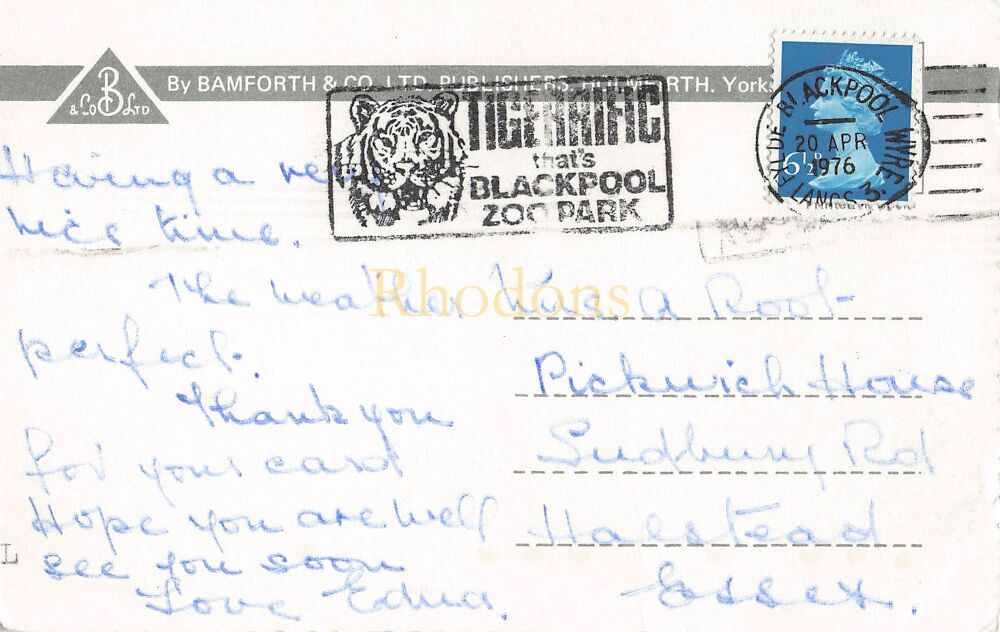 B
& Co LTD
By BAMFORTH & CO. LTD. PUBLISHERS. HOLMFIRTH. Yorks
TIGERRIFIC
that's
BLACKPOOL
ZOO PARK
BLACKPOOL WYRE
FYLDE LANCS
20 APR
1976
6½P
Having a very
nice time.
The weather
perfect.
Thank you
for your card
Hope you are well
see you soon
Love Edna.
Rhodons
Mrs. A Root
Pickwick House
Sudbury Rd
Halstead
Essex.
L